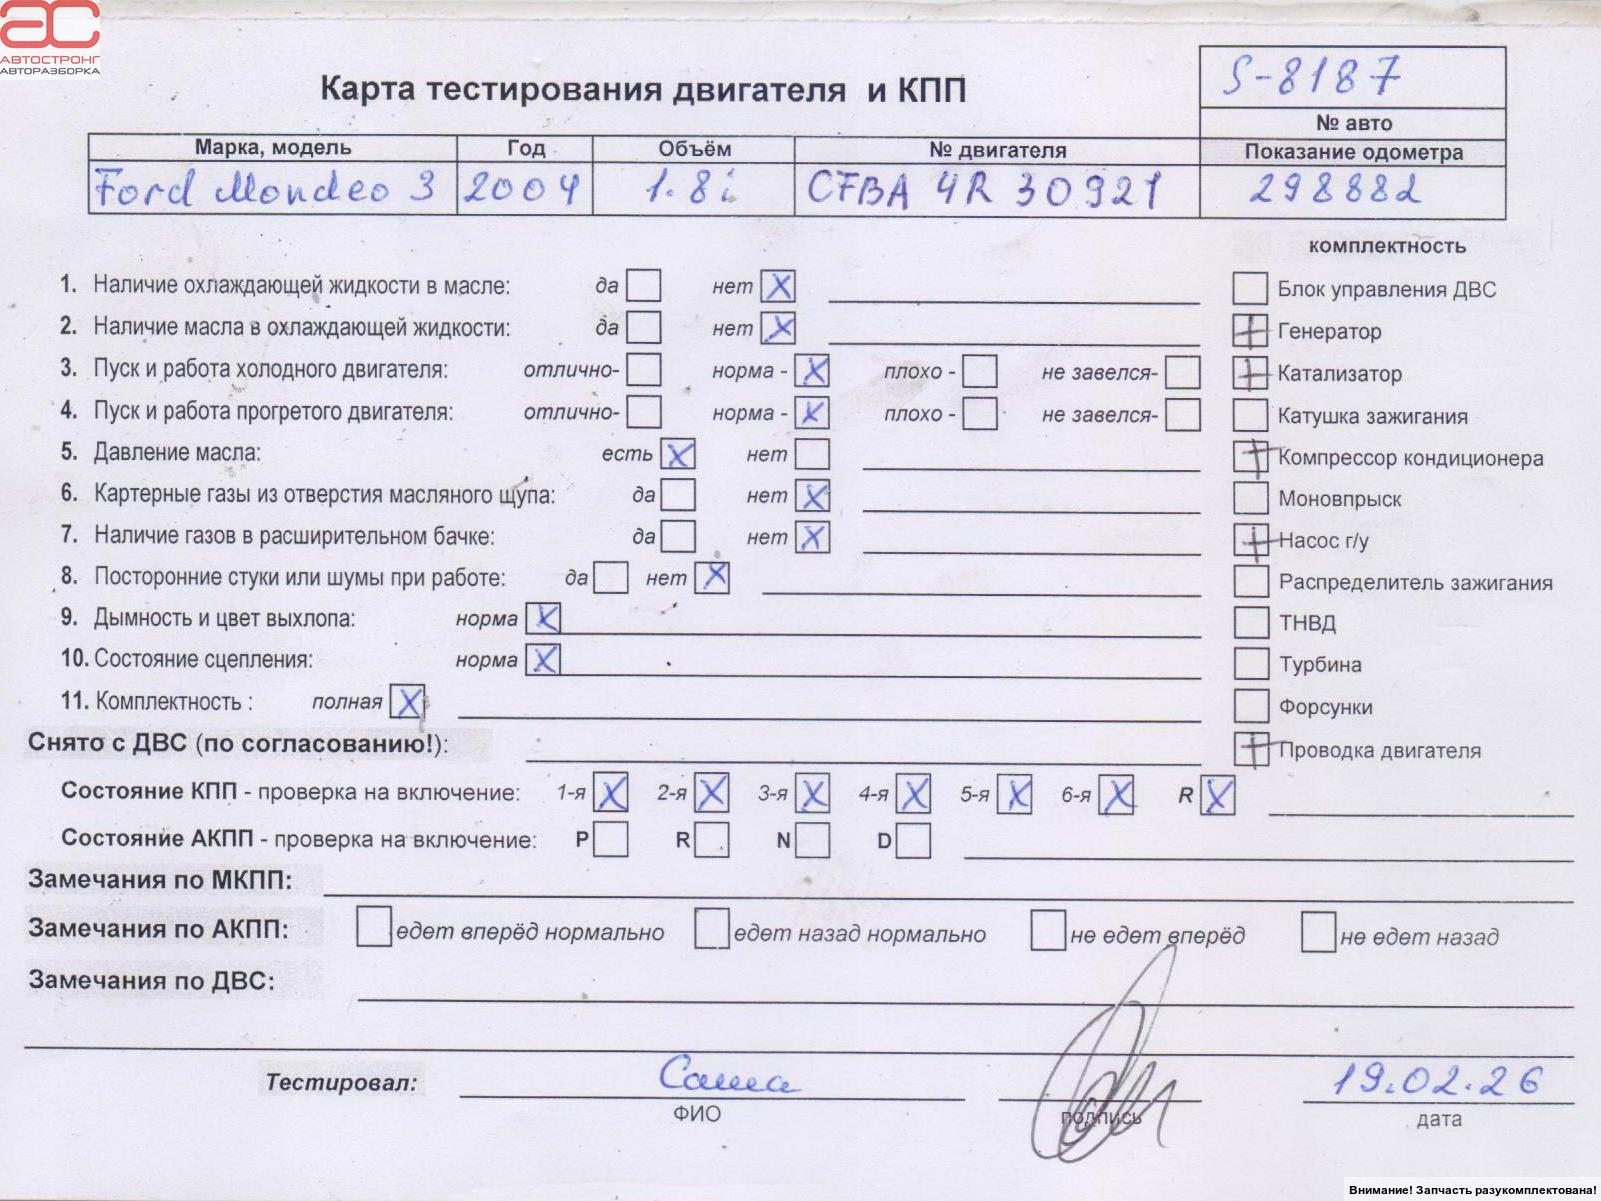 АВТОСТРОНГ
АВТОРАЗБОРКА
S-8187
Карта тестирования двигателя и КПП
№ авто
Марка, модель Год Объём № двигателя Показание одометра
Ford Mondeo 3 2004 1.8i CFBA 4R 30921 298882
комплектность
1. Наличие охлаждающей жидкости в масле: да нет X
Блок управления ДВС
2. Наличие масла в охлаждающей жидкости: да нет X
Генератор
3. Пуск и работа холодного двигателя: отлично- норма - X плохо - не завелся-
Катализатор
4. Пуск и работа прогретого двигателя: отлично- норма - X плохо - не завелся-
Катушка зажигания
5. Давление масла: есть X нет
Компрессор кондиционера
6. Картерные газы из отверстия масляного щупа: да нет X
Моновпрыск
7. Наличие газов в расширительном бачке: да нет X
Насос г/у
8. Посторонние стуки или шумы при работе: да нет X
Распределитель зажигания
9. Дымность и цвет выхлопа: норма X
ТНВД
10. Состояние сцепления: норма X
Турбина
11. Комплектность : полная X
Форсунки
Снято с ДВС (по согласованию!):
Проводка двигателя
Состояние КПП - проверка на включение: 1-я X 2-я X 3-я X 4-я X 5-я X 6-я X R X
Состояние АКПП - проверка на включение: P R N D
Замечания по МКПП:
Замечания по АКПП: едет вперёд нормально едет назад нормально не едет вперёд не едет назад
Замечания по ДВС:
Тестировал: Саша 19.02.26
ФИО подпись дата
Внимание! Запчасть разукомплектована!